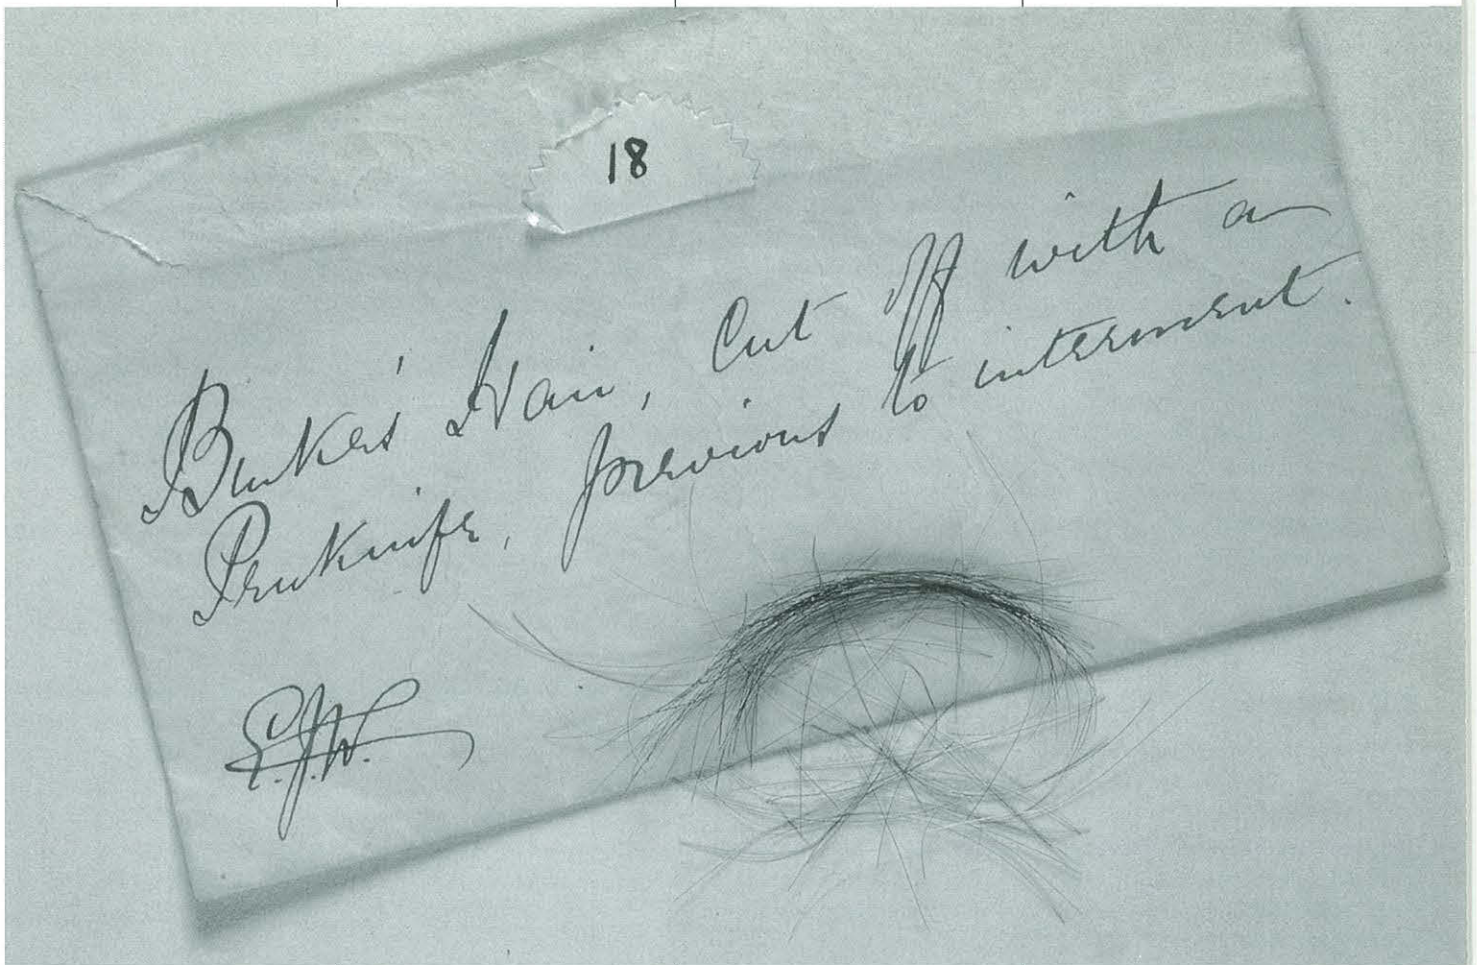 18
Burkes' Hair, Cut off with a
Penknife, previous to interment.
E.J.W.